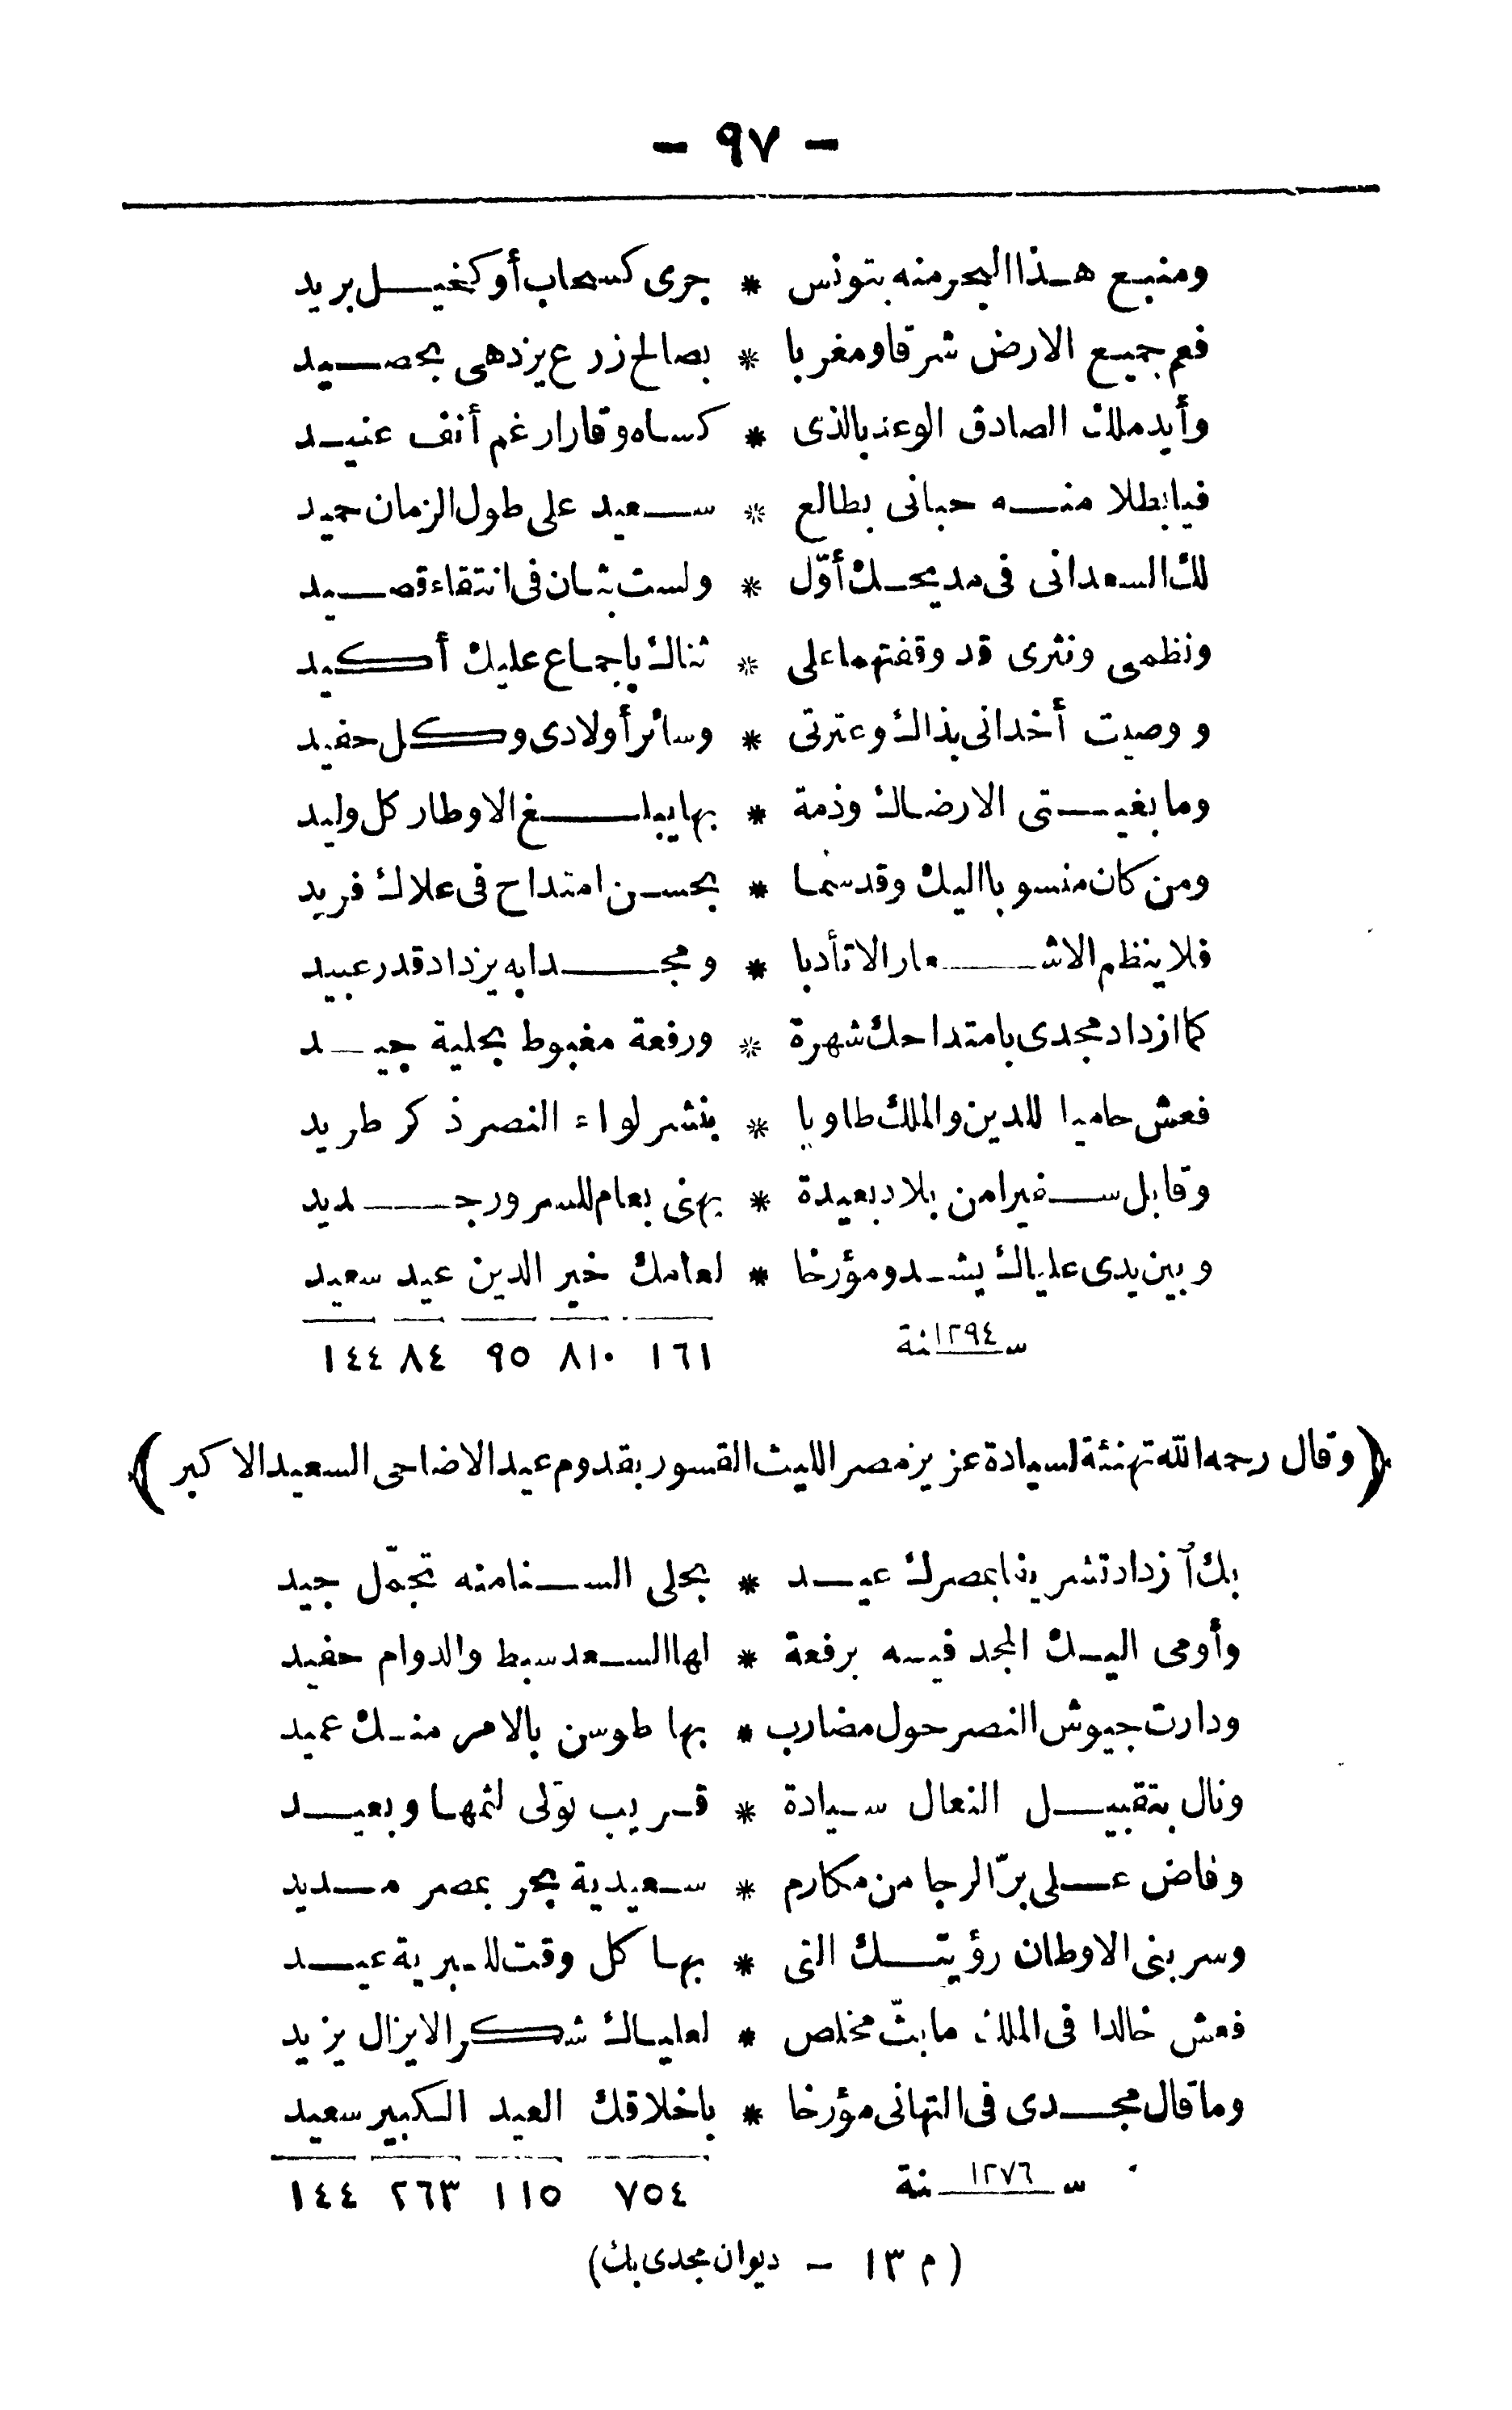 — ٩٧ —
ومنبع هذا البحر منه بتونس * جرى كسحاب أو كخيل بريد
فعم جميع الارض شرقا ومغربا * بصالح زرع يزدهى بحصيد
وأيد ملك الصادق الوعد بالذى * كساه وقارا رغم أنف عنيد
فيا بطلا منه حبانى بطالع * سعيد على طول الزمان حميد
لك السعد انى فى مديحك أوّل * ولست بثان فى انتقاء قصيد
ونظمى ونثرى قد وقفتهما على * ثناك باجماع عليك أكيد
ووصيت أخدانى بذاك وعترتى * وسائر أولادى وكل حفيد
وما بغيتى الا رضاك وذمة * بها يبلغ الاوطار كل وليد
ومن كان منسوبا اليك وقد سما * بحسن امتداح فى علاك فريد
فلا ينظم الاشعار الا تأدبا * ومجدا به يزداد قدر عبيد
كما ازداد مجدى بامتداحك شهرة * ورفعة مغبوط بحلية جيد
فعش حاميا للدين والملك طاويا * بنشر لواء النصر ذكر طريد
وقابل سفيرا من بلاد بعيدة * يهنى بعام للسرور جديد
وبين يدى علياك يشدو مؤرخا * لعامك خير الدين عيد سعيد
سنة ١٢٩٤ ١٦١ ٨١٠ ٩٥ ٨٤ ١٤٤
﴿وقال رحمه الله تهنئة لسيادة عزيز مصر الليث القسور بقدوم عيد الاضاحى السعيد الاكبر﴾
بك ٱزداد تشريفا بمصرك عيد * بحلى السنا منه تجمّل جيد
وأومى اليك المجد فيه برفعة * لها السعد سبط والدوام حفيد
ودارت جيوش النصر حول مضارب * بها طوسن بالامر منك عميد
ونال بتقبيل النعال سيادة * قريب تولى لثمها وبعيد
وفاض على برّ الرجا من مكارم * سعيدية بحر بمصر مديد
وسر بنى الاوطان رؤيتك التى * بها كل وقت للبرية عيد
فعش خالدا فى الملك ما بثّ مخلص * لعلياك شكرا لا يزال يزيد
وما قال مجدى فى التهانى مؤرخا * باخلاقك العيد الكبير سعيد
سنة ١٢٧٦ ٧٥٤ ١١٥ ٢٦٣ ١٤٤
(م ١٣ — ديوان مجدى بك)